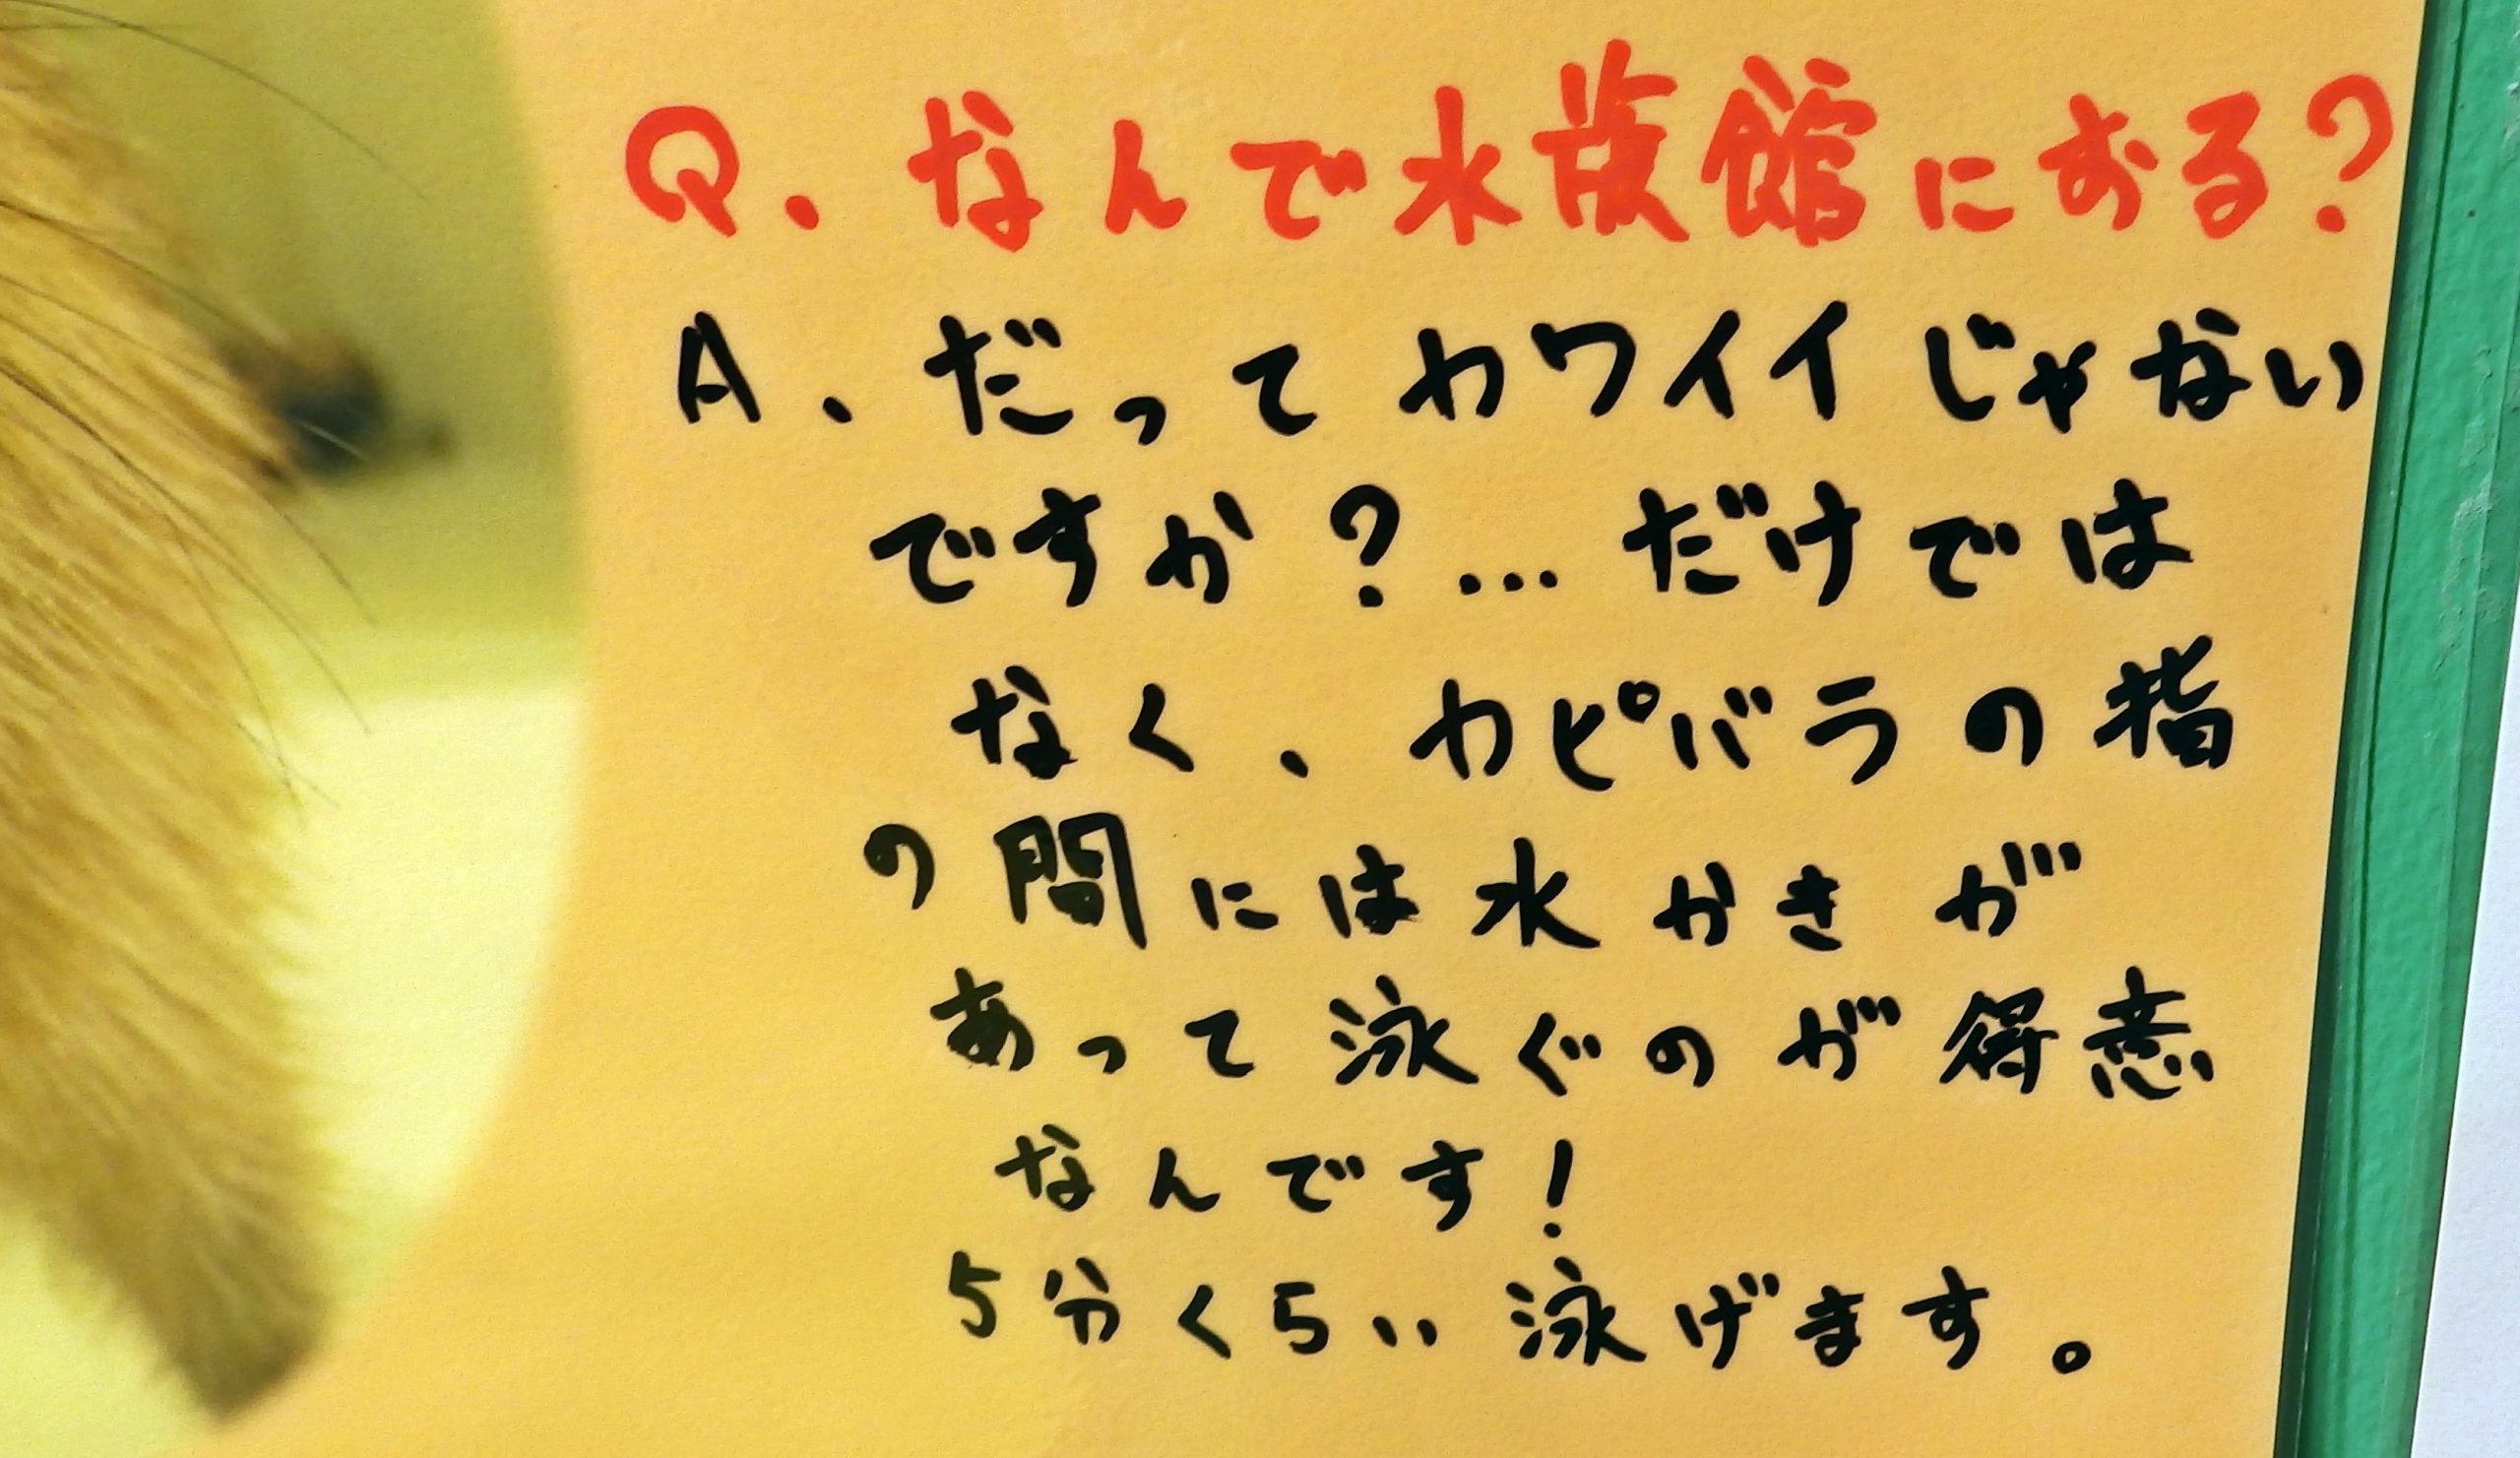 Q. なんで水族館におる?
A、だってカワイイじゃない
ですか?…だけでは
なく、カピバラの指
の間には水かきが
あって泳ぐのが得意
なんです!
5分くらい泳げます。